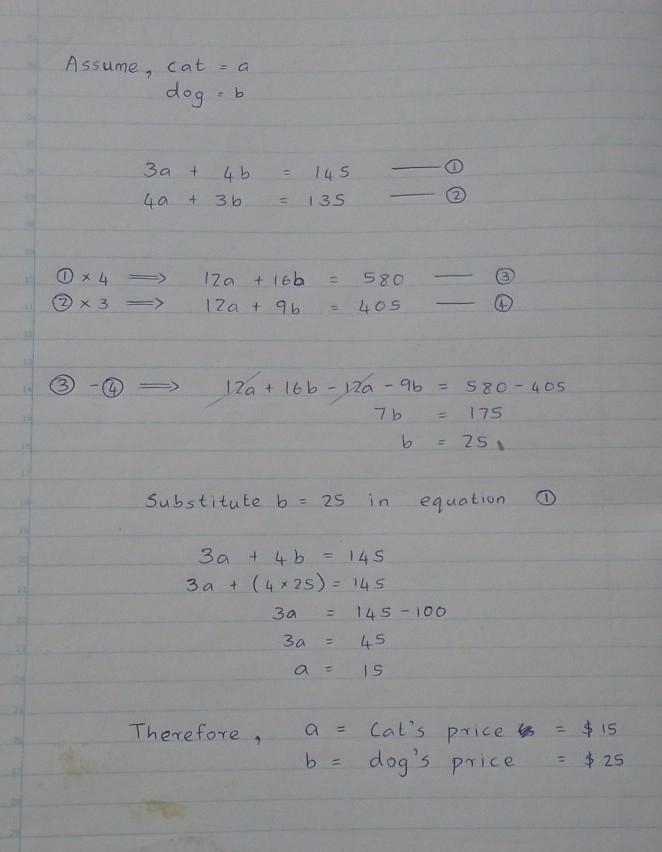 Assume, cat = a
dog = b
3a + 4b = 145 —— ①
4a + 3b = 135 —— ②
① × 4 ⟹ 12a + 16b = 580 —— ③
② × 3 ⟹ 12a + 9b = 405 —— ④
③ - ④ ⟹ 12a + 16b - 12a - 9b = 580 - 405
7b = 175
b = 25
Substitute b = 25 in equation ①
3a + 4b = 145
3a + (4×25) = 145
3a = 145 - 100
3a = 45
a = 15
Therefore, a = Cat's price = $15
b = dog's price = $25